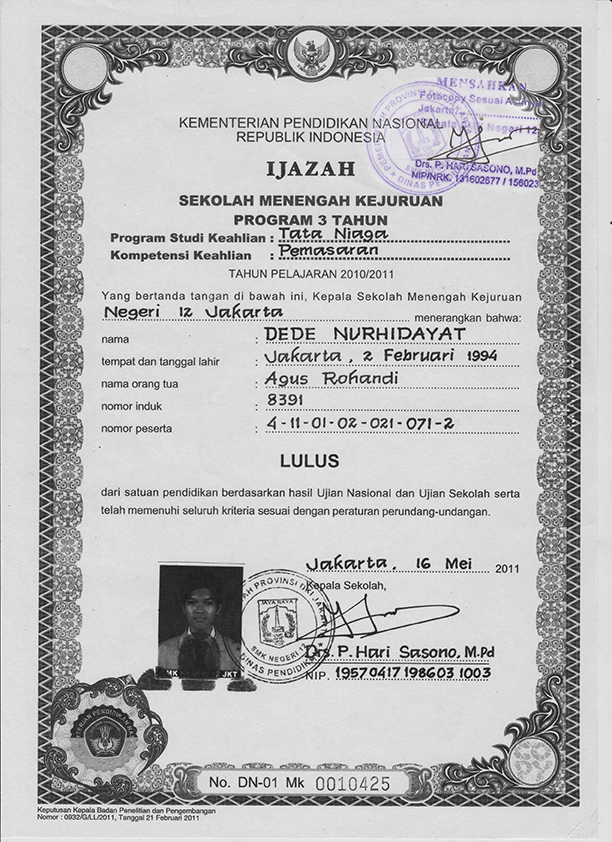 MENSAHKAN
Fotocopy Sesuai
Jakarta
Negeri 12
Drs. P. HARI SASONO, M.Pd
NIP/NRK. 131602677 / 156023
KEMENTERIAN PENDIDIKAN NASIONAL
REPUBLIK INDONESIA
IJAZAH
SEKOLAH MENENGAH KEJURUAN
PROGRAM 3 TAHUN
Program Studi Keahlian : Tata Niaga
Kompetensi Keahlian : Pemasaran
TAHUN PELAJARAN 2010/2011
Yang bertanda tangan di bawah ini, Kepala Sekolah Menengah Kejuruan
Negeri 12 Jakarta menerangkan bahwa:
nama : DEDE NURHIDAYAT
tempat dan tanggal lahir : Jakarta, 2 Februari 1994
nama orang tua : Agus Rohandi
nomor induk : 8391
nomor peserta : 4-11-01-02-021-071-2
LULUS
dari satuan pendidikan berdasarkan hasil Ujian Nasional dan Ujian Sekolah serta
telah memenuhi seluruh kriteria sesuai dengan peraturan perundang-undangan.
Jakarta, 16 Mei 2011
Kepala Sekolah,
JAYA RAYA
SMK NEGERI 12
DINAS PENDIDIKAN
Drs. P. Hari Sasono, M.Pd
NIP. 19570417 198603 1003
JKT
No. DN-01 Mk 0010425
Keputusan Kepala Badan Penelitian dan Pengembangan
Nomor : 0932/G/LL/2011, Tanggal 21 Februari 2011